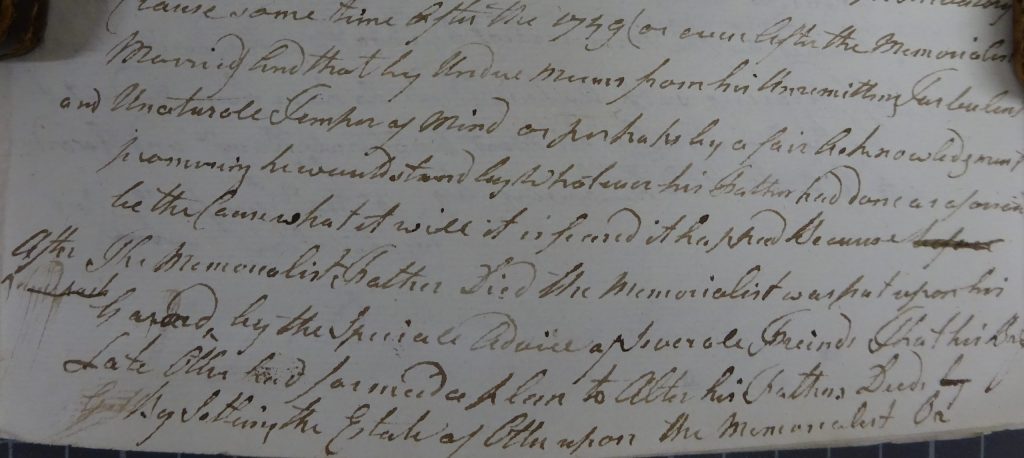 Cause some time after the 1749 (or even after the Memorialist
Married) And that by Undue means from his Unremitting Turbulent
and Unaturale Temper of Mind or perhaps by a fair Acknowledgment
promising he would stand by Whatever his Father had done as aforesaid
be the Cause what it will it is feared it hapned Because before
After The Memorialists Father Died the Memorialist was put upon his
Guard, by the Speciale Advice of Severale Freinds That his
Late Otter had formed a plan to Alter his Fathers Deeds by
By Setling the Estate of Otter upon the Memorialist